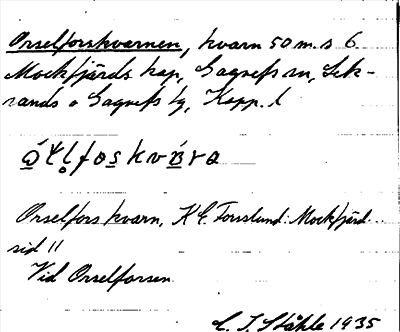 Orselforskvarnen, kvarn 50 m. s 6
Mockfjärds kap, Gagnefs sn, Lek-
sands o Gagnefs tg, Kopp. l
Orselfors kvarn, K E Forsslund: Mockfjärd
sid 11
Vid Orselforsen
C. I. Ståhle 1935